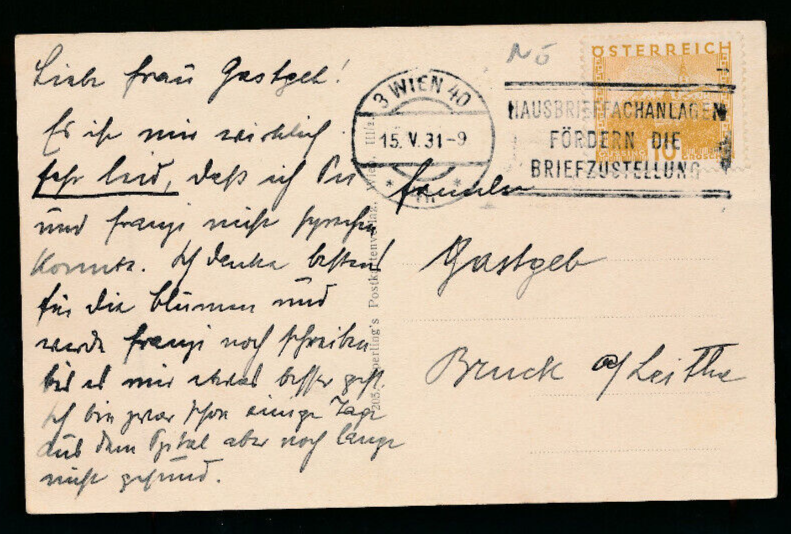 Liebe Frau Gastgeb!
Es ist mir wirklich
sehr leid, daß ich Sie
und Franzi nicht sprechen
konnte. Ich danke bestens
für die Blumen und
werde Franzi noch schreiben
bis es mir etwas besser geht
Ich bin zwar schon einige Tage
aus dem Spital aber noch lange
nicht gesund.
NÖ
ÖSTERREICH
10
3 WIEN 40
15.V.31-9
HAUSBRIEFFACHANLAGEN
FÖRDERN DIE
BRIEFZUSTELLUNG
Familie
Gastgeb
Bruck a/Leitha
Sperling's Postkartenverlag, Wien, III.